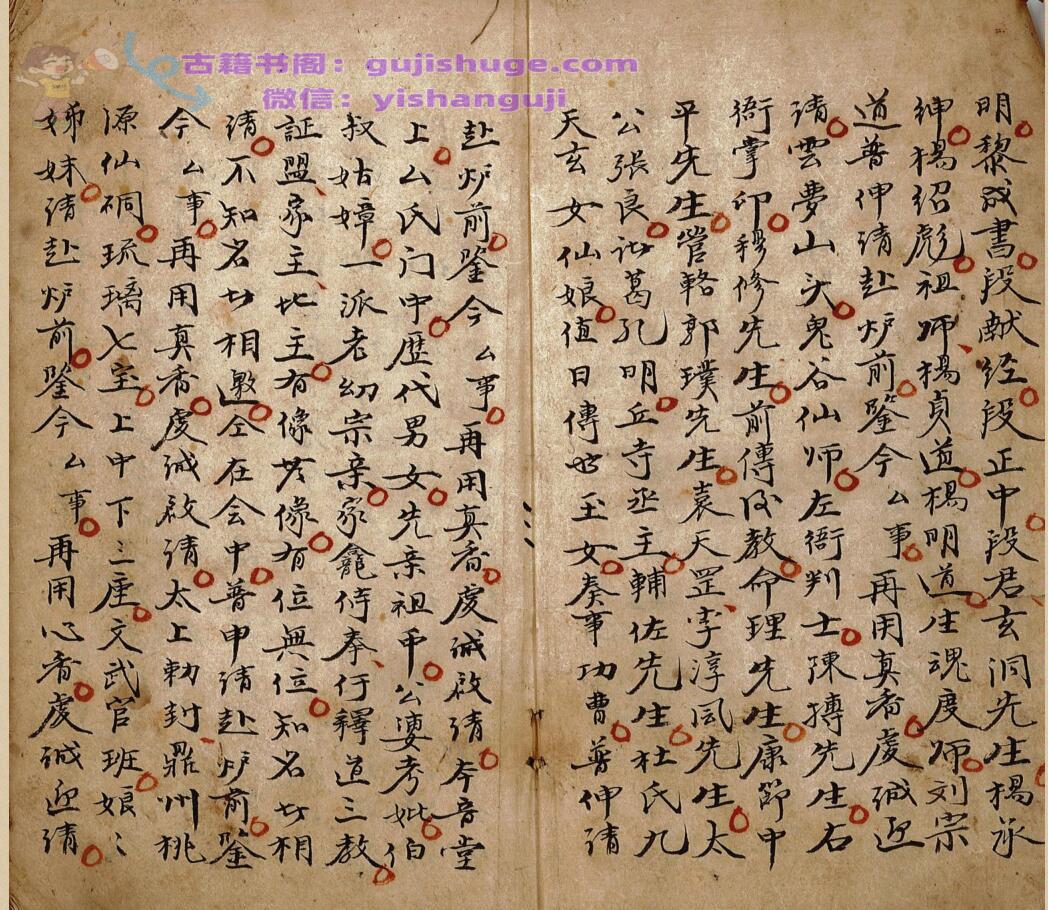 古籍书阁：gujishuge.com
微信：yishanguji
明黎成書段献经段正中段君玄洞先生楊承
紳楊绍彪祖师楊貞道楊明道生魂度师刘宗
道普伸请赴炉前鉴今厶事再用真香虔诚迎
请雲夢山头鬼谷仙师左衙判士陳摶先生右
衙掌印穆修先生前傳後教命理先生康節中
平先生管輅郭璞先生袁天罡李淳風先生太
公張良诸葛孔明丘寺丞主輔佐先生杜氏九
天玄女仙娘值日傳世玉女奏事功曹普伸请
赴炉前鉴今厶事再用真香虔诚啟请本音堂
上厶氏门中歷代男女先亲祖公婆考妣伯
叔姑嫜一派老幼宗亲家龕侍奉行釋道三教
証盟家主地主有像無像有位無位知名相
请不知名相邀仝在会中普申请赴炉前鉴
今厶事再用真香虔诚啟请太上勅封鼎州桃
源仙硐琉璃七宝上中下三座文武官班娘〻
姊妹请赴炉前鉴今厶事再用心香虔诚迎请